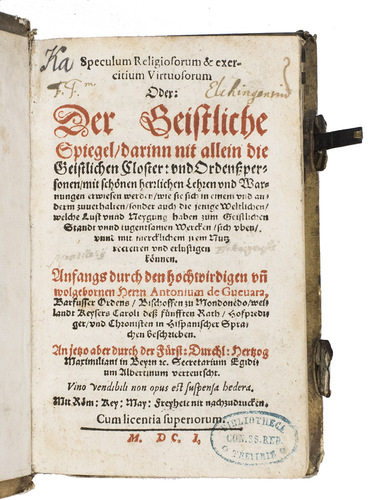 Ka
Speculum Religiosorum & exer-
citium Virtuosorum
F. F.m
Elchingensis
Oder:
Der Geistliche
Spiegel/darinn nit allein die
Geistlichen Closter: vnd Ordenßper-
sonen/mit schönen herzlichen Lehren vnd War-
nungen erwiesen werden/wie sie sich in einem vnd an-
derm zuuerhalten/sonder auch die jenige Weltlichen/
welche Lust vnnd Neygung haben zum Geistlichen
Standt vnnd tugentsamen Wercken/sich vben/
vnnd mit mercklichem jrem Nutz
vnd erlustigen
können.
Anfangs durch den hochwirdigen vñ
wolgebornen Herrn Antonium de Gueuara,
Barfusser Ordens/Bischoffen zu Mondonedo/weil
landt Keysers Caroli deß fünfften Rath/Hofpredi-
ger/vnd Chronisten in Hispanischer Spra-
chen beschrieben.
An jetzo aber durch der Fürst: Durchl: Hertzog
Maximiliani in Beyrn ꝛc. Secretarium Ægidi-
um Albertinum verteutscht.
Vino vendibili non opus est suspensa hedera.
Mit Röm: Key: May: Freyheit nit nachzudrucken.
Cum licentia superiorum.
M. DC. I.
BIBLIOTHECA
CON. SS. RED.